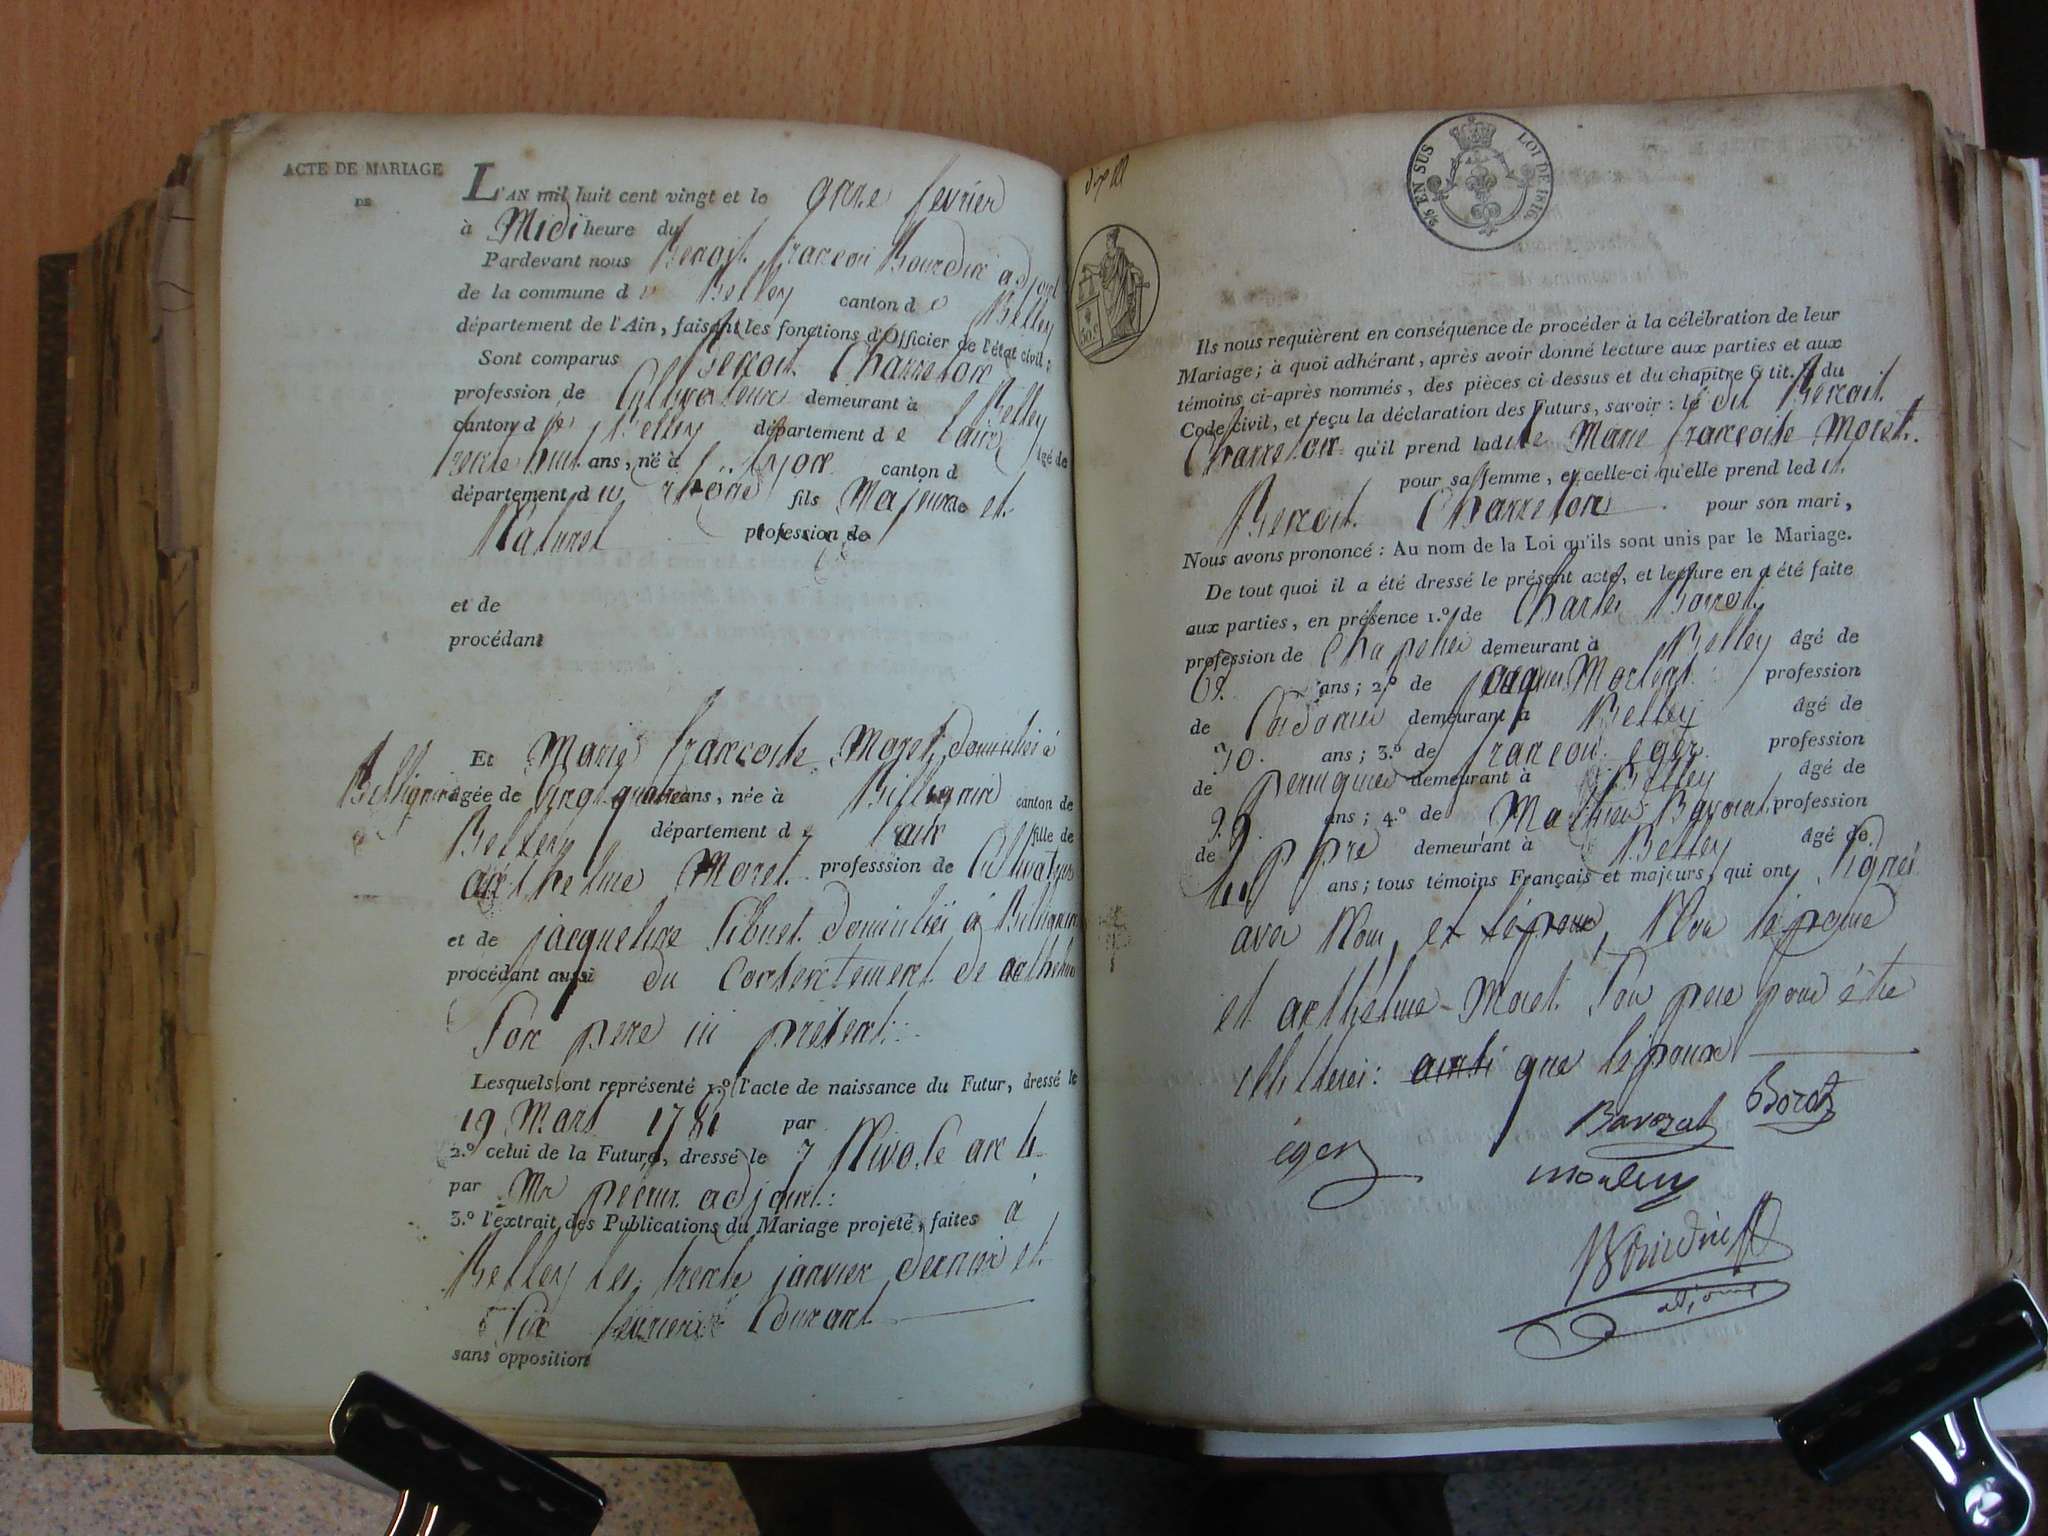 ACTE DE MARIAGE
DE
L'AN mil huit cent vingt et le onze fevrier
à Midi heure du
Pardevant nous Benoit françois Bourdin adjoint
de la commune de Belley canton de Belley
département de l'Ain, faisant les fonctions d'Officier de l'état civil;
Sont comparus Benoit Charreton
profession de Cultivateur demeurant à Belley
canton de Belley département de l'ain âgé de
trente huit ans, né à Lyon canton d
département du rhône fils Majeur de et
Naturel profession de
et de
procédant
Et Marie françoise Moret, domiciliée à
Billignin âgée de vingt quatre ans, née à Billignin canton de
Belley département de l'ain fille de
anthelme Moret professsion de Cultivateur
et de jacqueline Sibuet domiciliés à Billignin
procédant aussi du Consentement de anthelme
Son pere ici présent:
Lesquels ont représenté 1.º l'acte de naissance du Futur, dressé le
19 Mars 1781 par
2.º celui de la Future, dressé le 7 Nivose an 4
par Mr adjoint:
3.º l'extrait des Publications du Mariage projeté, faites à
Belley les trente janvier dernier et
Six fevrier Courant
sans opposition
25 EN SUS LOI DE 1816
50 c
Ils nous requièrent en conséquence de procéder à la célébration de leur
Mariage; à quoi adhérant, après avoir donné lecture aux parties et aux
témoins ci-après nommés, des pièces ci-dessus et du chapitre 6 tit. 5 du
Code civil, et reçu la déclaration des Futurs, savoir: le dit Benoit
Charreton qu'il prend ladite Marie françoise Moret
pour sa femme, et celle-ci qu'elle prend ledit
Benoit Charreton pour son mari,
Nous avons prononcé: Au nom de la Loi qu'ils sont unis par le Mariage.
De tout quoi il a été dressé le présent acte, et lecture en a été faite
aux parties, en présence 1.º de Charles Borrot
profession de Chapelier demeurant à Belley âgé de
ans; 2.º de jacques profession
de Cordonnier demeurant à Belley âgé de
30 ans; 3.º de françois eger profession
de perruquier demeurant à Belley âgé de
ans; 4.º de Mathieu Bavozat profession
de demeurant à Belley âgé de
ans; tous témoins Français et majeurs, qui ont Signés
avec Nous, et l'épouse, Non l'épouse
et anthelme Moret Son pere pour être
illiterés: ainsi que l'époux
Bavozat Borot
éger
Bourdin
adjoint